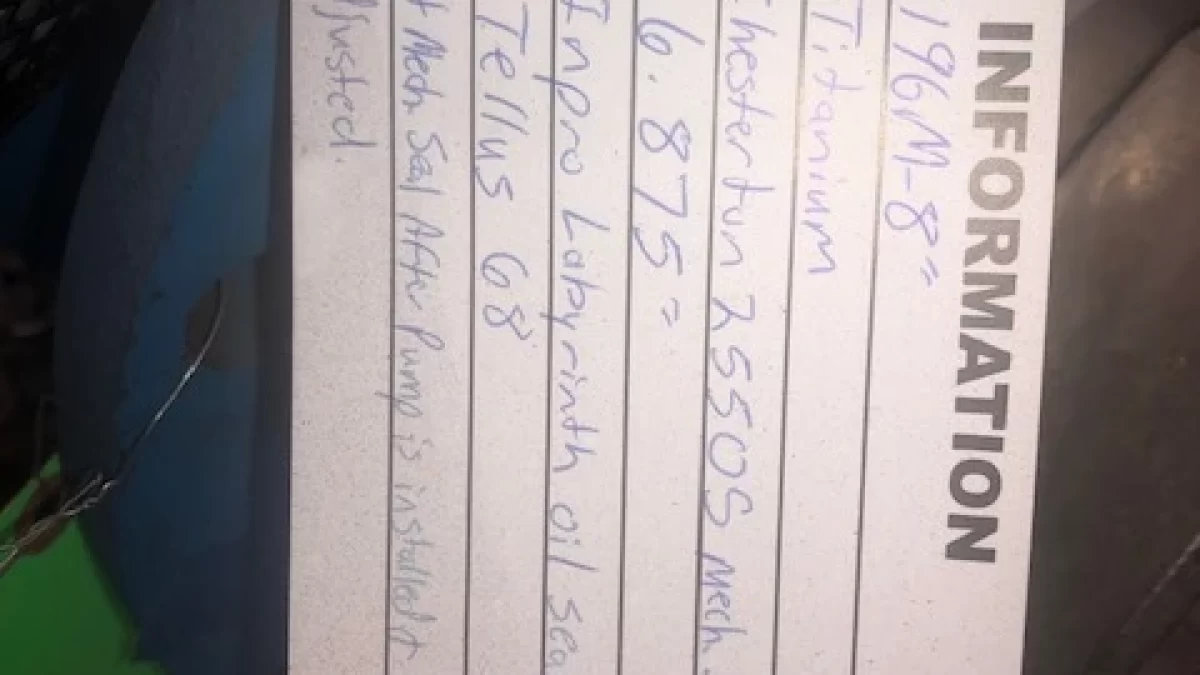 INFORMATION
196M-8"
Titanium
hesterton 2550S Mech.
6.875"
Inpro Labyrinth oil sea
Tellus 68
t Mech Seal After Pump is installed &
justed.